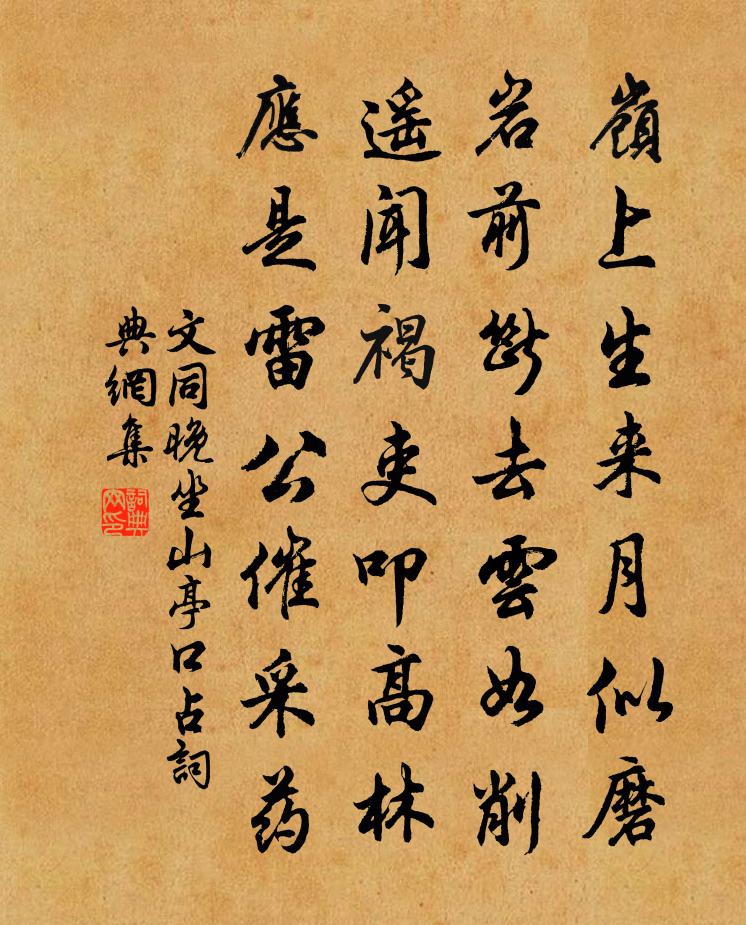 嶺上生来月似磨
岩前斷去雲如削
遥聞褐吏叩高林
應是雷公催采药
文同晚坐山亭口占詞
典網集
詞典
网印